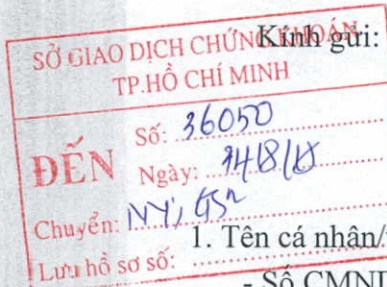 Kính gửi:
SỞ GIAO DỊCH CHỨNG KHOÁN
TP.HỒ CHÍ MINH
ĐẾN
Số: 36050
Ngày:
Chuyển: NY,
Lưu hồ sơ số:
1. Tên cá nhân/
- Số CMND